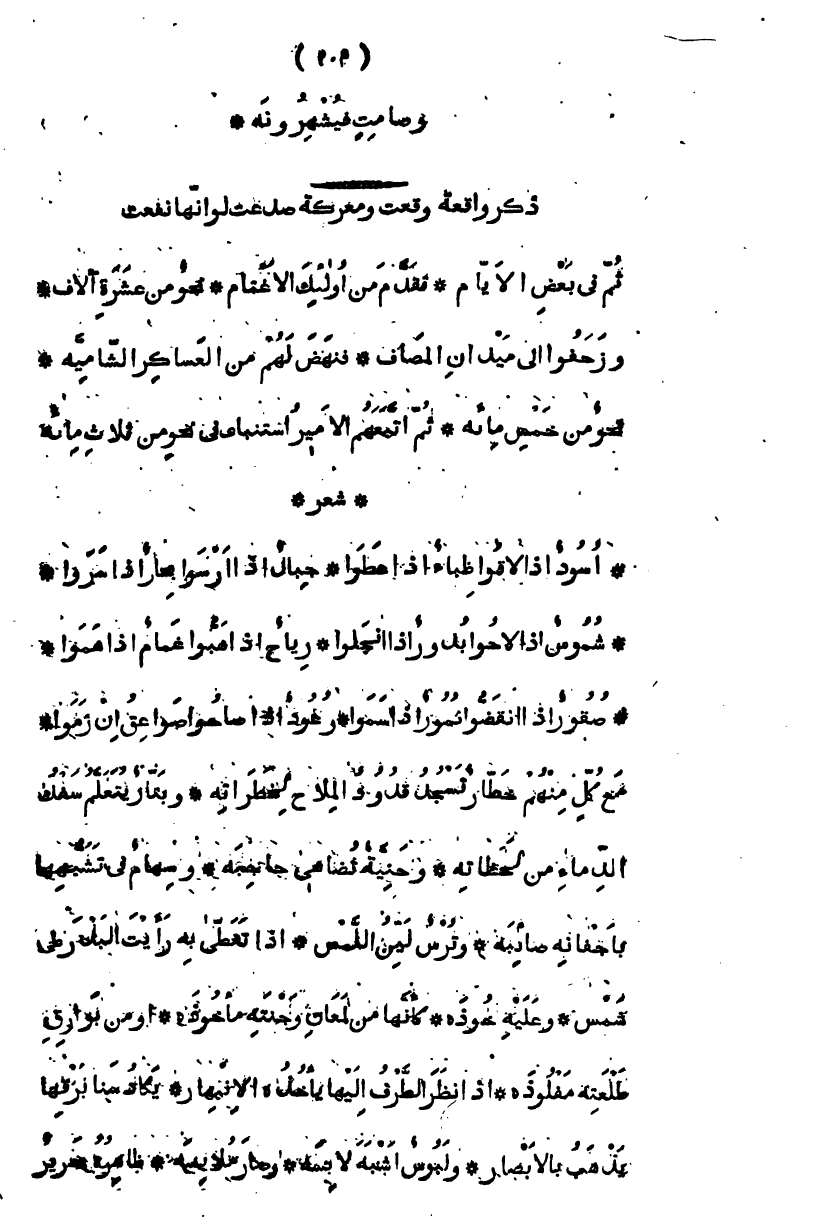 (٢٠٩)
وصامتٍ فيُشْهِرُونَه *
ذكر واقعة وقعت ومعركة صدعت لو انّها نفعت
ثُمّ فى بَعْضِ الاَيّام * تقَدَّم من اُولٰئِكَ الاغْتام * نحوٌ من عشَرَةِ آلاف *
وزَحَفُوا الى مَيْدانِ المصَاف * فنهَضَ لَهُمْ من العَساكِرِ الشّاميَّه *
نحوٌ من خَمْسِ مِائَه * ثُمّ اتْبَعَهُم الاميرُ اسَنْباى فى نحوٍ من ثلاثِ مِائَه
* شعر *
* اُسُودٌ اذا لاقَوا ظِباءٌ اذا عَطَوا * جِبالٌ اذا اَرْسَوا بِحارٌ اذا سَرَوا *
* شُمُوسٌ اذا لاحُوا بُدورٌ اذا انجَلوا * رِياحٌ اذا هَبُّوا غَمامٌ اذا هَمَوا *
* صُقُورٌ اذا انقَضُوا نُمُورٌ اذا سَمَوا * رُعُودٌ اذا صاحُوا صَواعِقُ اِنْ رَمَوا *
مَع كُلٍّ مِنْهُمْ خَطّارٌ تَسْجُد قُدُودُ المِلاحِ لخَطَراتِه * وبَتّارٌ يَتعَلّم سَفْكَ
الدِّماءِ من لَحَظاتِه * وحَنِيّةٌ تُضاهى حاجِبَه * وسِهامٌ فى تَشَبُّهِها
بأجْفانِه صائِبَه * وتُرْسٌ لَيِّنُ اللَّمْس * اذا تغَطّى بِه رَأَيْتَ البَدْرَ على
شَمْس * وعَلَيْهِ خُوذَه * كأنَّها من لَمَعاتِ وَجْنَتِه مأخُوذَه * او من بَوارِقِ
طَلْعَتِه مَفْلُوذَه * اذا نظَرَ الطَّرْفُ اِلَيْها يأخُذُه الاِنْبِهار * يَكادُ سَنا بَرْقِها
يَذْهَبُ بالاَبْصار * ولَبُوسٌ اشْبَهَ لابِسَه * وصارَ مُلابِسَه * ظاهِرُه حَريرٌ